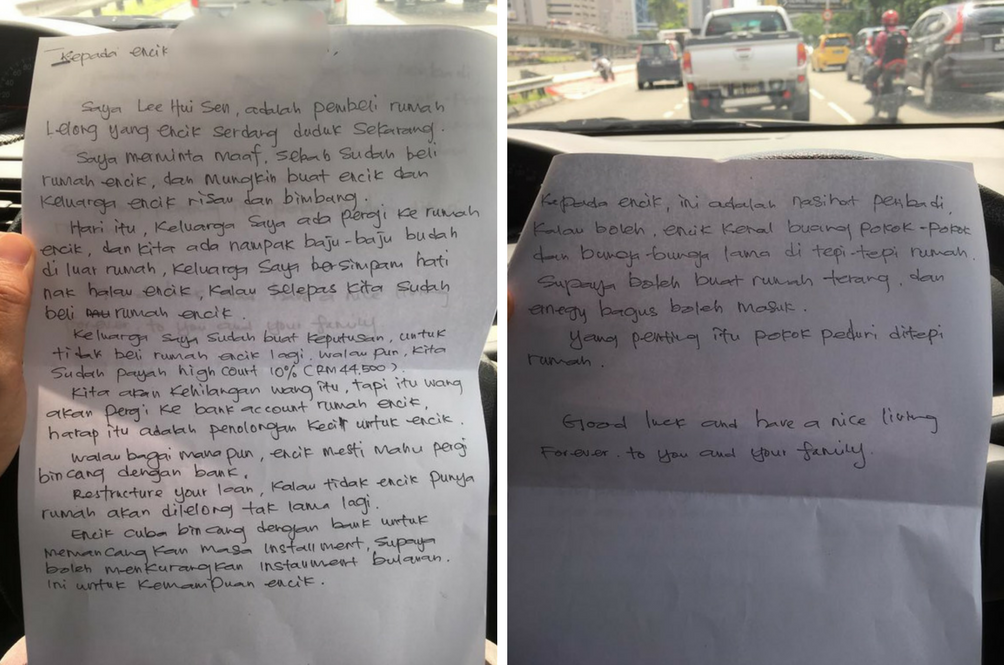 Kepada encik
Saya Lee Hui Sen, adalah pembeli rumah
Lelong yang encik serdang duduk sekarang.
Saya meminta maaf, sebab sudah beli
rumah encik, dan mungkin buat encik dan
Keluarga encik risau dan bimbang.
Hari itu, Keluarga Saya ada pergi ke rumah
encik, dan kita ada nampak baju-baju budah
di luar rumah, Keluarga Saya bersimpam hati
nak halau encik, Kalau selepas Kita Sudah
beli rumah encik.
Keluarga Saya Sudah buat Keputusan, untuk
tidak beli rumah encik lagi. walau pun, Kita
Sudah payah high court 10% (RM 44,500).
Kita akan Kehilangan wang itu, tapi itu wang
akan pergi Ke bank account rumah encik,
harap itu adalah penolongan Kecil untuk encik.
walau bagai mana pun, encik mesti Mahu pergi
bincang dengan bank.
Restructure your loan, Kalau tidak encik punya
rumah akan dilelong tak lama lagi.
Encik cuba bincang dengan bank untuk
memancangkan masa installment, Supaya
boleh menkurangkan instauement bulanan.
Ini untuk Kemampuan encik.
Kepada encik, ini adalah nasihat penbadi.
Kalau boleh, encik Kenal buang pokok-pokok
dan bunga-bunga lama di tepi-tepi rumah.
Supaya boleh buat rumah terang, dan
energy bagus boleh Masuk.
Yang penting itu pokok peduri ditepi
rumah.
Good luck and have a nice living
Forever. to you and your family.